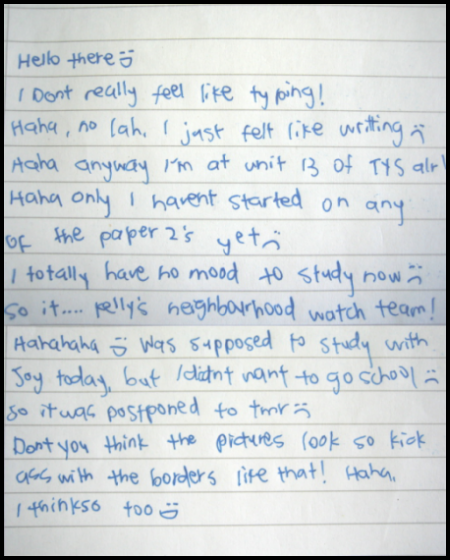 Hello there :)
I Dont really feel like typing!
Haha, no lah. I just felt like writing :(
Haha anyway I'm at unit 13 of TYS alr!
Haha only I havent started on any
of the paper 2's yet :(
I totally have no mood to study now :(
so it.... Kelly's neighbourhood watch team!
Hahahaha :) Was supposed to study with
Joy today, but I didnt want to go school :(
so it was postponed to tmr :(
Dont you think the pictures look so kick
ass with the borders like that! Haha.
I think so too :)